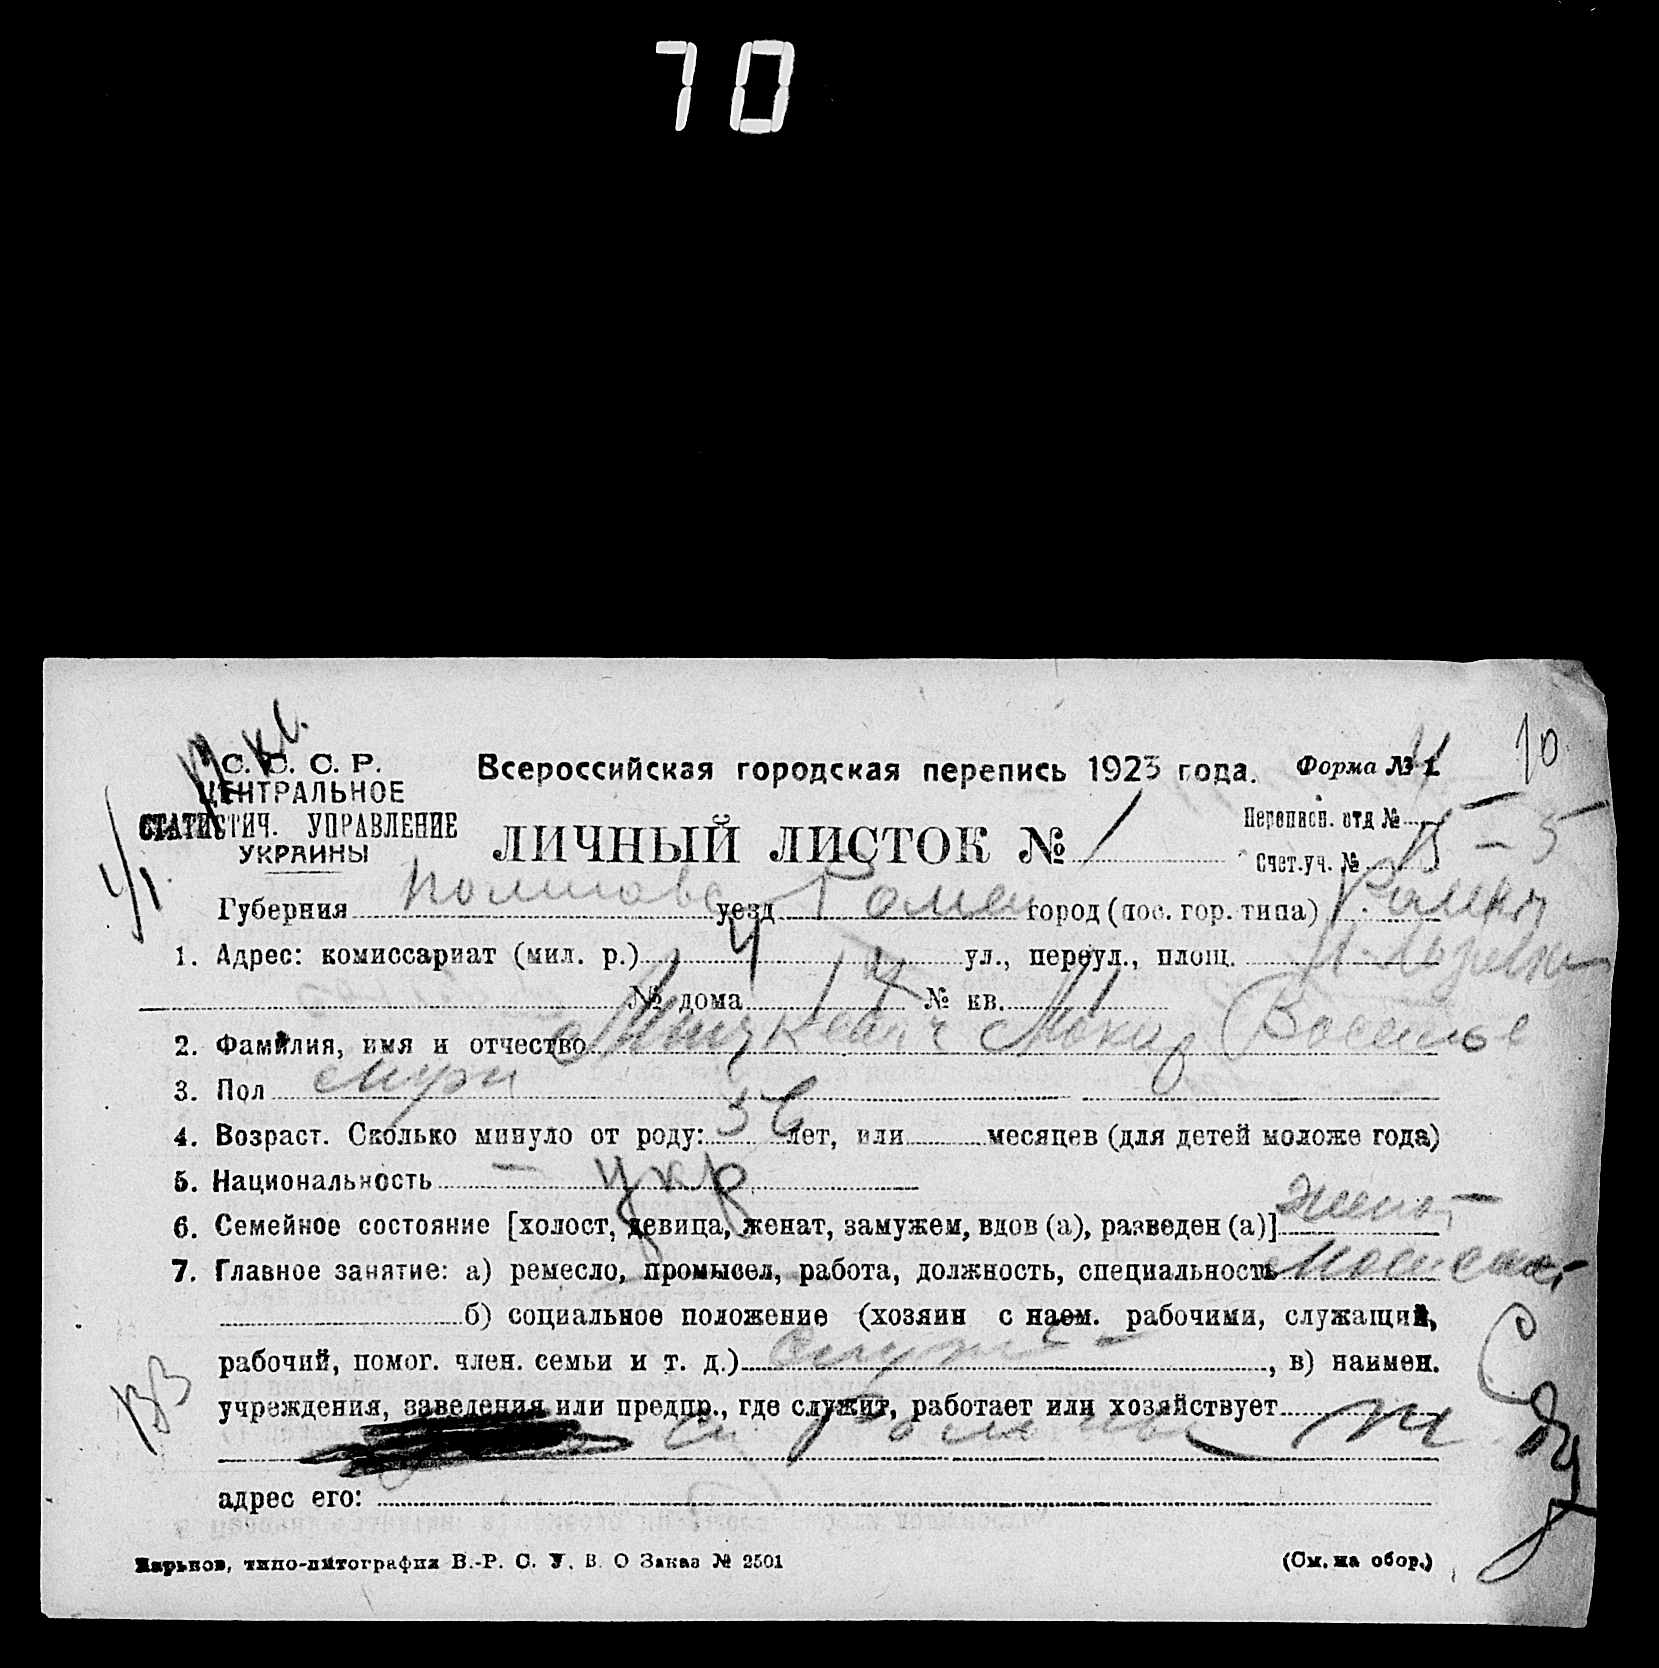 70
10
С. С. С. Р.
ЦЕНТРАЛЬНОЕ
СТАТИСТИЧ. УПРАВЛЕНИЕ
УКРАИНЫ
Всероссийская городская перепись 1923 года.
Форма № 1
ЛИЧНЫЙ ЛИСТОК № 1
Переписн. отд №
Счет.уч. №
Губерния Полтавс уезд Ромен город (пос. гор. типа) Ромны
1. Адрес: комиссариат (мил. р.) ул., переул., площ.
№ дома 14 № кв. 1
2. Фамилия, имя и отчество Мокий
3. Пол муж
4. Возраст. Сколько минуло от роду: 36 лет, или месяцев (для детей моложе года)
5. Национальность укр
6. Семейное состояние [холост, девица, женат, замужем, вдов (а), разведен (а)] женат
7. Главное занятие: а) ремесло, промысел, работа, должность, специальность
б) социальное положение (хозяин с наем. рабочими, служащий,
рабочий, помог. член. семьи и т. д.) служ , в) наимен.
учреждения, заведения или предпр., где служит, работает или хозяйствует
адрес его:
Харьков, типо-литография В.-Р. С. У. В. О Заказ № 2501
(См. на обор.)